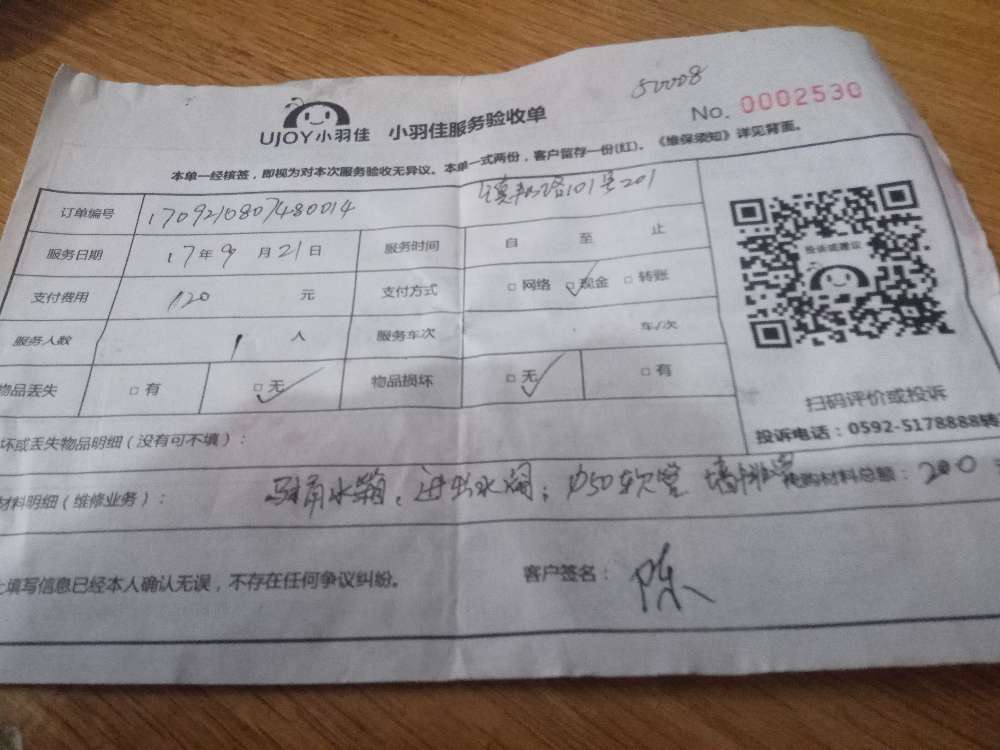 50008
UJOY小羽佳 小羽佳服务验收单 No. 0002530
本单一经核签，即视为对本次服务验收无异议。本单一式两份，客户留存一份(红)。《维保须知》详见背面。
订单编号 1709210807480014 路101号201
服务日期 17年9月21日 服务时间 自 至 止
支付费用 120 元 支付方式 □网络 □现金 □转账
服务人数 1 人 服务车次 车/次
物品丢失 □有 □无 物品损坏 □无 □有
投诉或建议
扫码评价或投诉
投诉电话：0592-5178888转
坏或丢失物品明细（没有可不填）：
材料明细（维修业务）： 三角水箱、进出水阀；D50软管 购材料总额：200
填写信息已经本人确认无误，不存在任何争议纠纷。 客户签名： 陈